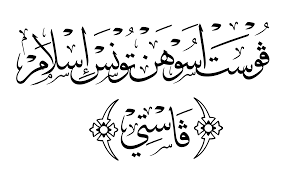 ڤوست اسوهن تونس إسلام
(ڤاستي)